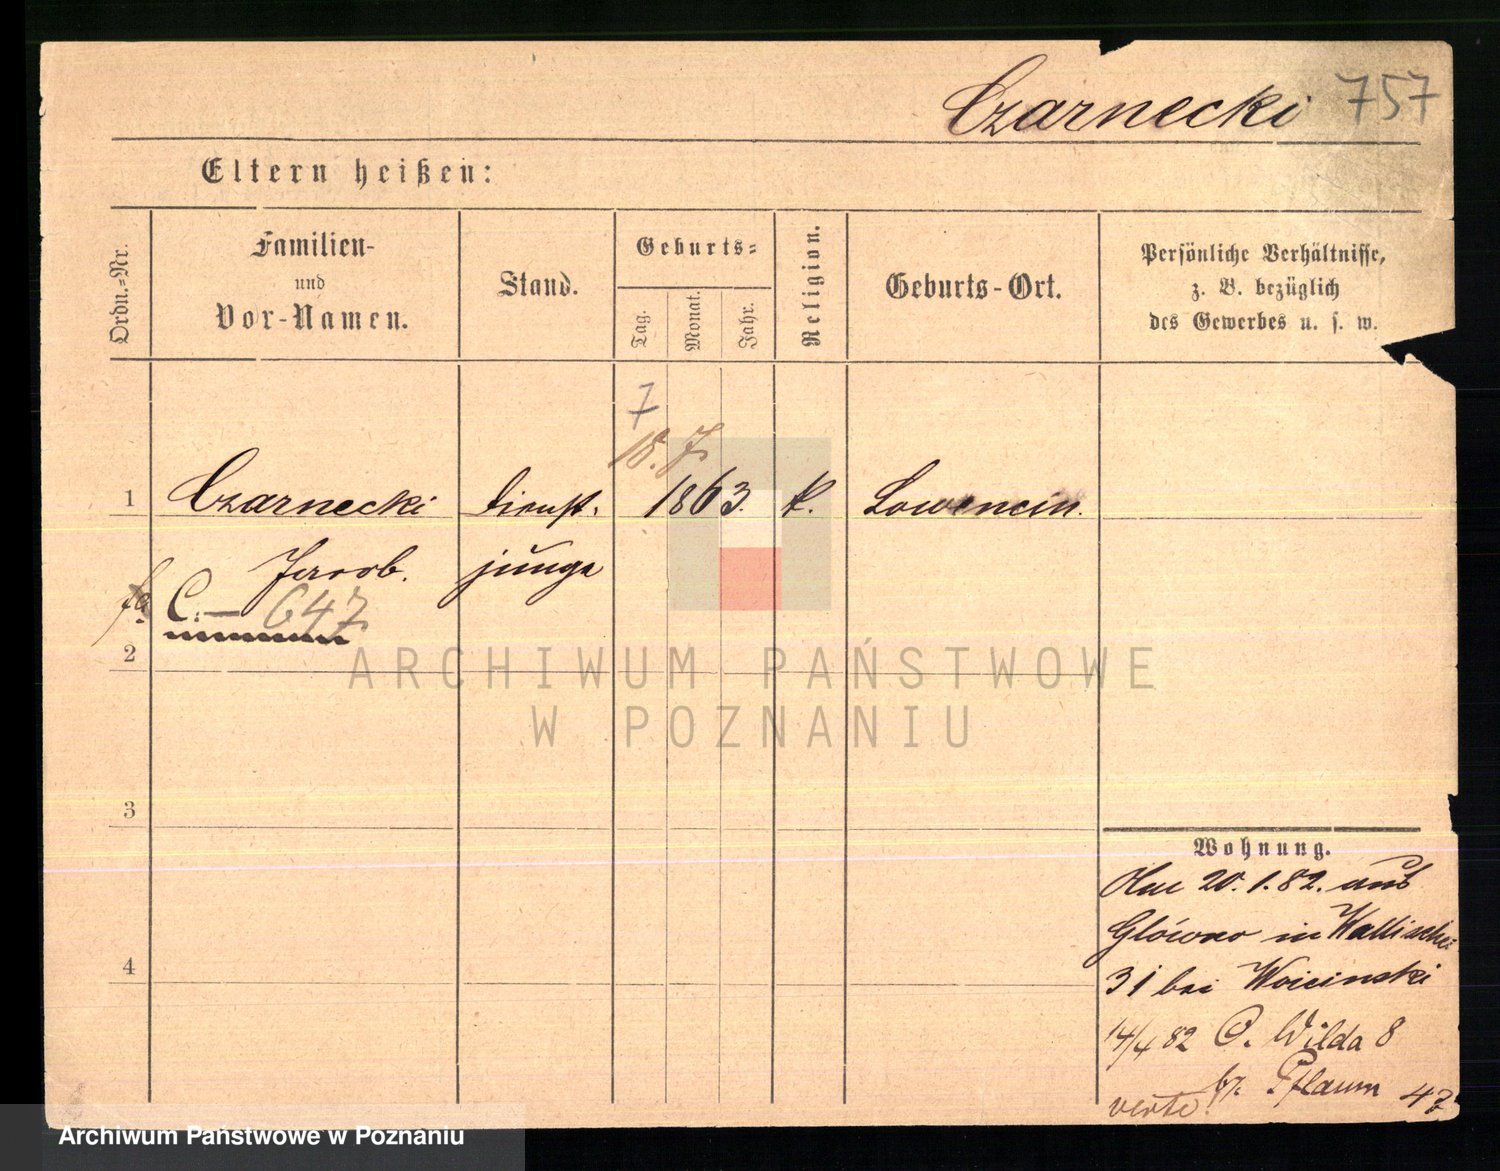 Czarnecki 757
Eltern heißen:
Ordn.-Nr.
Familien-
und
Vor-Namen.
Stand.
Geburts-
Tag.
Monat.
Jahr.
Religion.
Geburts-Ort.
Persönliche Verhältnisse,
z. B. bezüglich
des Gewerbes u. s. w.
7
18. 7.
1 Czarnecki Dienst- 1863. k. Lowencin.
Jacob. junge
C.— 647
2
3
4
Wohnung.
20. 1. 82. aus
Glówno in Wallischei
31 bei Woicinski
14/4 82 O. Wilda 8
bz. Pflaum 47
verte!
ARCHIWUM PAŃSTWOWE
W POZNANIU
Archiwum Państwowe w Poznaniu